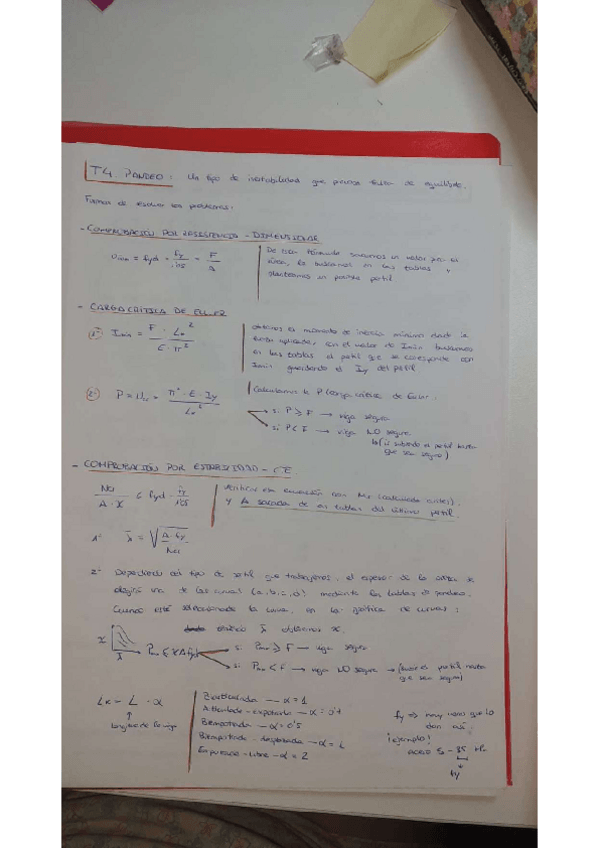 T4. PANDEO: Un tipo de inestabilidad que provoca fallo de equilibrio.
Formas de resolver los problemas:
- COMPROBACIÓN POR RESISTENCIA - DIMENSIONAR
= fyd = fy / 1'05 = F / A
De esta fórmula sacamos un valor para el
área, lo buscamos en las tablas y
planteamos un posible perfil
- CARGA CRÍTICA DE EULER
1º Imin = F · Lk² / E · π²
obtienes el momento de inercia mínimo
fuerza aplicada, con el valor de Imin buscamos
en las tablas el perfil que se corresponde con
Imin guardando el Iy del perfil
2º P = Ncr = π² · E · Iy / Lk²
Calculamos la P (carga crítica de Euler.
si P ≥ F → viga segura
si P < F → viga NO segura
subiendo el perfil hasta
que sea seguro)
- COMPROBACIÓN POR ESTABILIDAD - CE
Ncr / A · χ ≤ fyd = fy / 1'05
Verificar esta ecuación con Ncr (calculada antes)
y A sacada de las tablas del último perfil.
1º λ̄ = √ A · fy / Ncr
2º Dependiendo del tipo de perfil que trabajemos, el espesor de la
elegirá una de las curvas (a, b, c, d) mediante las tablas de pandeo.
Cuando esté seleccionada la curva, en la gráfica de curvas:
λ̄ obtenemos χ.
χ
λ̄
≤ χ A fyd
si ≥ F → viga segura
si < F → viga NO segura → (buscar el perfil hasta
que sea seguro)
Lk = L · α
↑
Longitud de la viga
Biarticulada → α = 1
Articulada - empotrada → α = 0'7
Biempotrada → α = 0'5
Biempotrada - desplazada → α = 1
Empotrada - libre → α = 2
fy ⇒ hay veces que lo
dan así:
¡ejemplo!
acero S-
fy